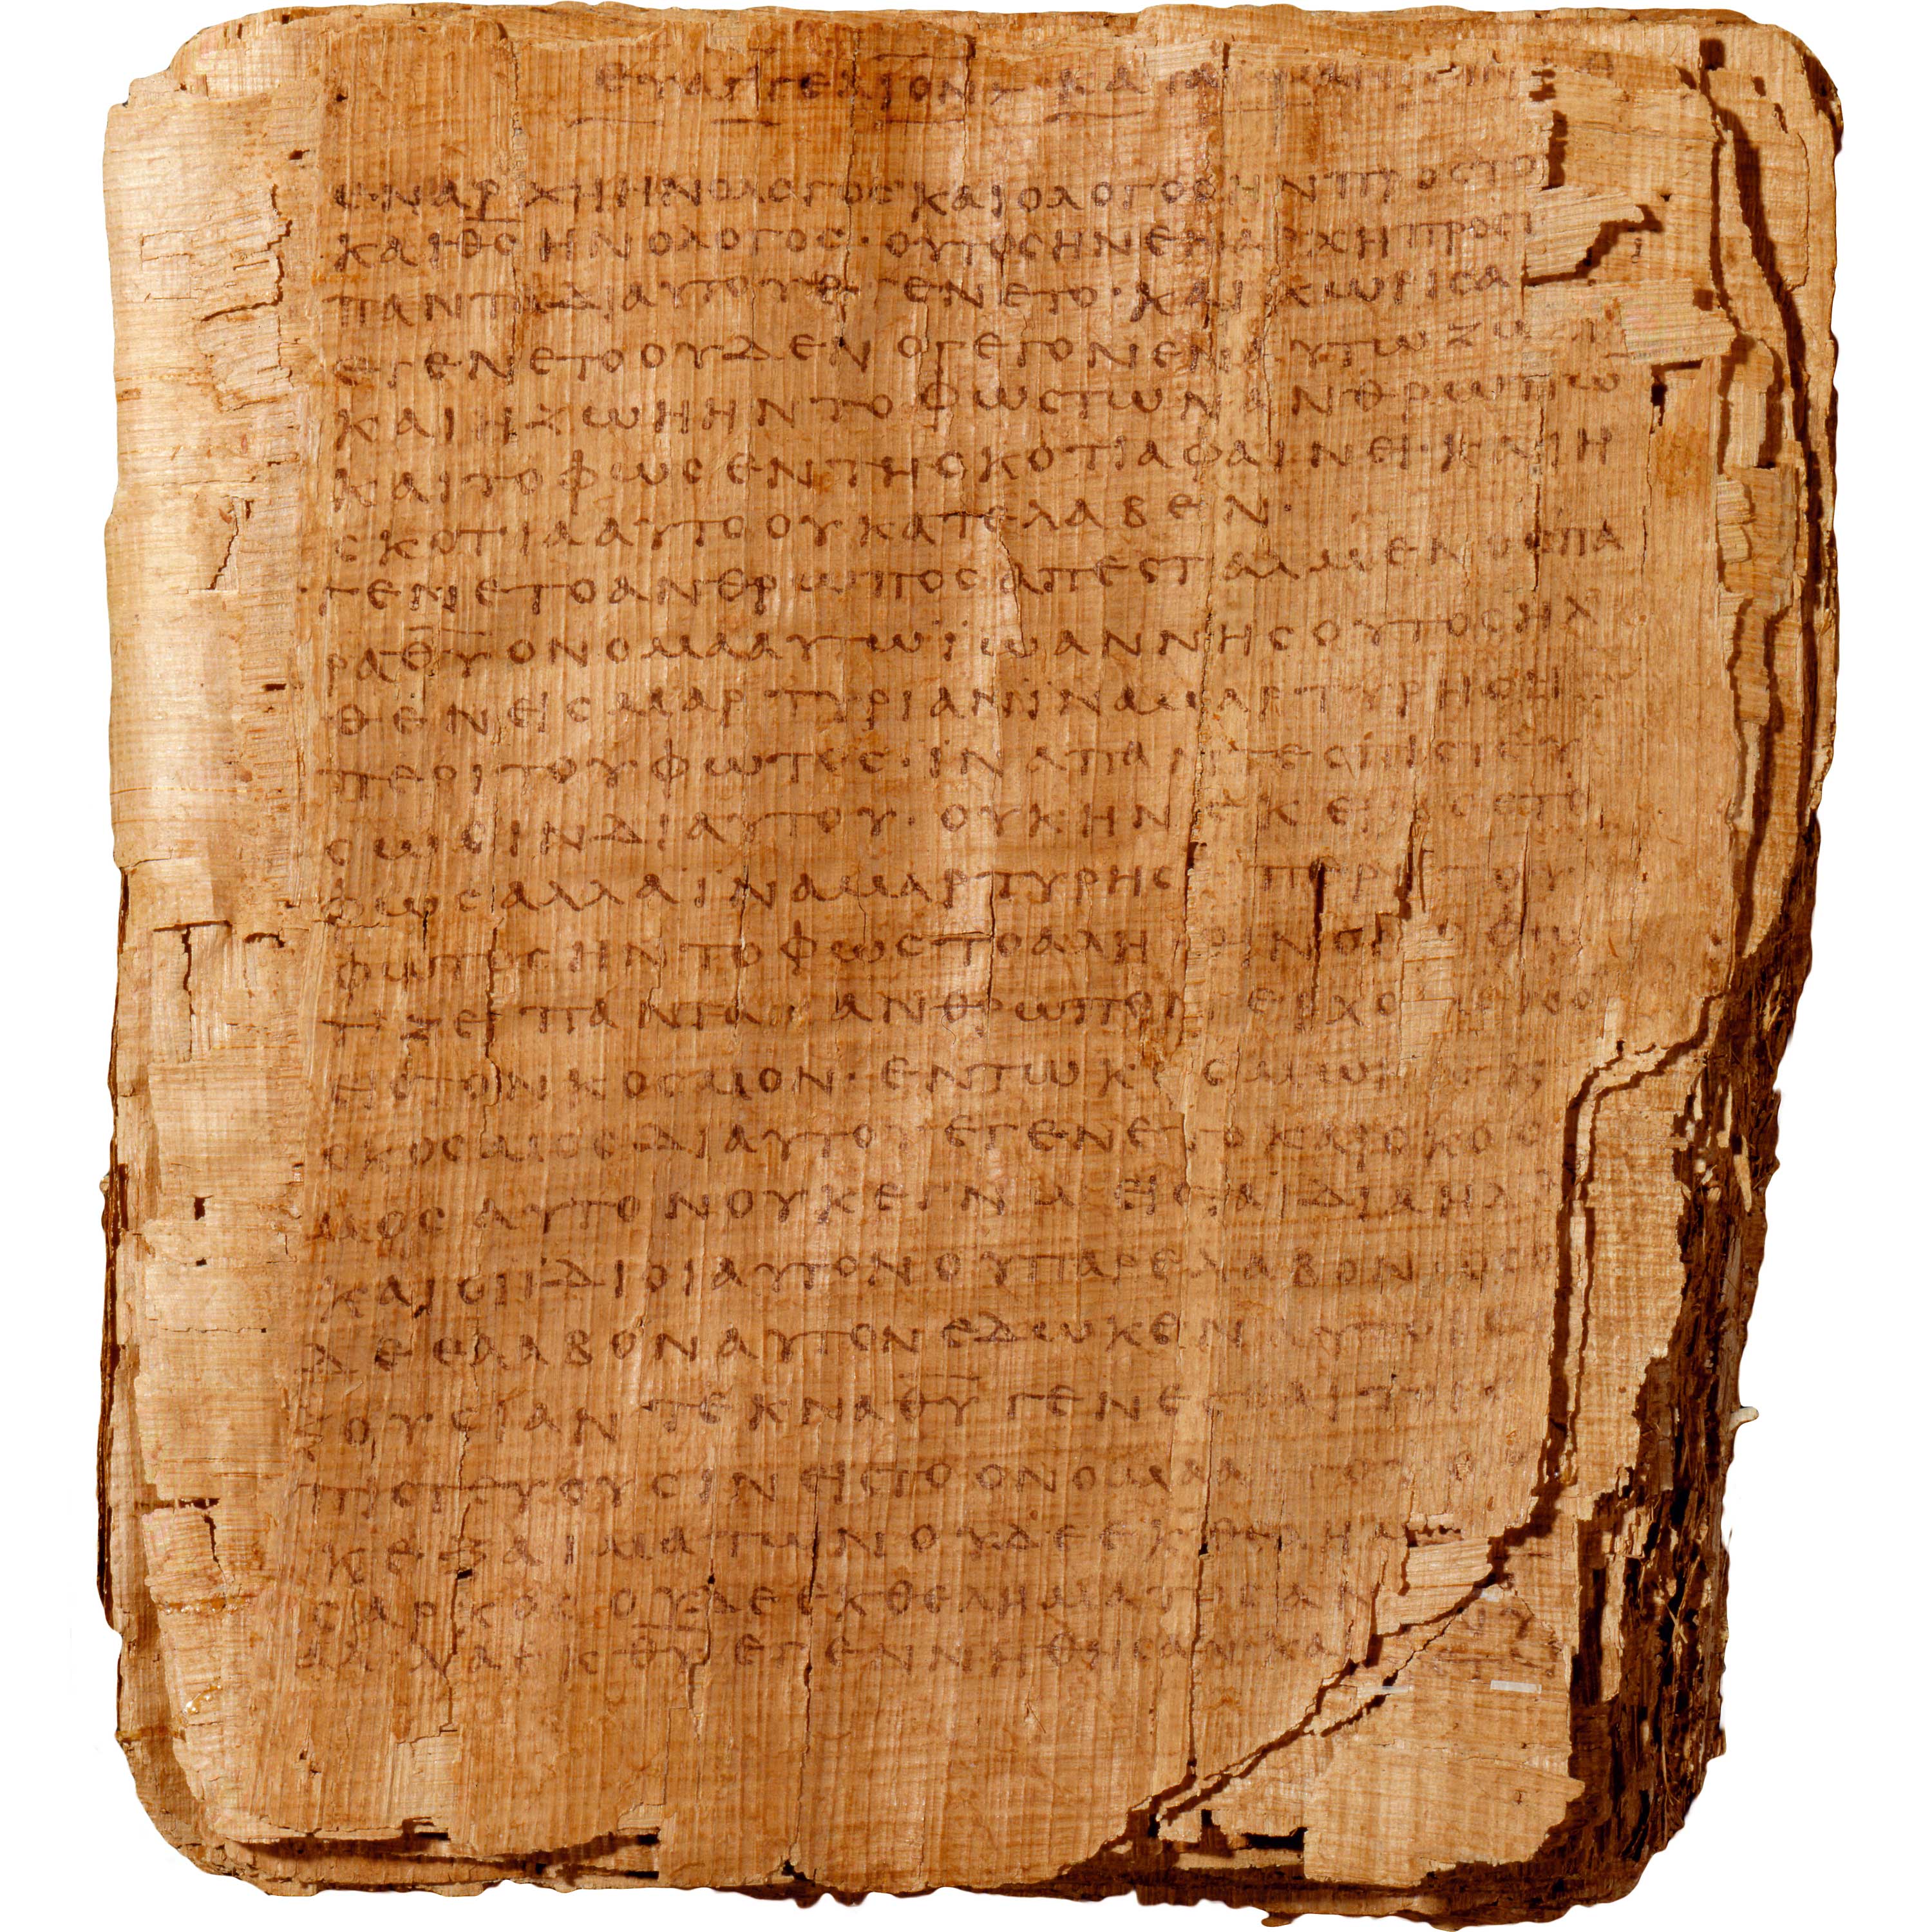 ΕΥΑΓΓΕΛΙΟΝ ΚΑΤΑ
ΕΝΑΡΧΗΗΝΟΛΟΓΟΣΚΑΙΟΛΟΓΟΣΗΝΠΡΟΣΤΟ
ΚΑΙΘ̅Σ̅ΗΝΟΛΟΓΟΣ·ΟΥΤΟΣΗΝΕΝΑΡΧΗΠΡΟΣ
ΠΑΝΤΑΔΙΑΥΤΟΥΕΓΕΝΕΤΟ·ΚΑΙΧΩΡΙΣΑ
ΕΓΕΝΕΤΟΟΥΔΕΝΟΓΕΓΟΝΕΝΑΥΤΩΖΩ
ΚΑΙΗΖΩΗΗΝΤΟΦΩΣΤΩΝΑΝΘΡΩΠΩ̅
ΚΑΙΤΟΦΩΣΕΝΤΗΣΚΟΤΙΑΦΑΙΝΕΙ·ΚΑΙΗ
ΣΚΟΤΙΑΑΥΤΟΟΥΚΑΤΕΛΑΒΕΝ·
ΓΕΝΕΤΟΑΝΘΡΩΠΟΣΑΠΕΣΤΑΛΜΕΝΟΣΠΑ
ΡΑΘ̅Υ̅ΟΝΟΜΑΑΥΤΩΪΩΑΝΝΗΣΟΥΤΟΣΗΛ
ΘΕΝΕΙΣΜΑΡΤΥΡΙΑΝΪΝΑΜΑΡΤΥΡΗΣΗ
ΠΕΡΙΤΟΥΦΩΤΟΣ·ΪΝΑΠΑΝΤΕΣΠΙΣΤΕΥ
ΣΩΣΙΝΔΙΑΥΤΟΥ·ΟΥΚΗΝΕΚΕΙΝΟΣΤΟ
ΦΩΣΑΛΛΑΪΝΑΜΑΡΤΥΡΗΣΗΠΕΡΙΤΟΥ
ΦΩΤΟΣΗΝΤΟΦΩΣΤΟΑΛΗΘΗΝΟΝΟΦΩ
ΤΙΖΕΙΠΑΝΤΑΑΝΘΡΩΠΟΝΕΡΧΟΜΕΝΟ
ΕΙΣΤΟΝΚΟΣΜΟΝ·ΕΝΤΩΚΟΣΜΩΗΝΚΑΙ
ΟΚΟΣΜΟΣΔΙΑΥΤΟΥΕΓΕΝΕΤΟΚΑΙΟΚΟΣ
ΜΟΣΑΥΤΟΝΟΥΚΕΓΝΩΕΙΣΤΑΙΔΙΑΗΛΘ
ΚΑΙΟΙΪΔΙΟΙΑΥΤΟΝΟΥΠΑΡΕΛΑΒΟΝΟΣΟΙ
ΔΕΕΛΑΒΟΝΑΥΤΟΝΕΔΩΚΕΝΑΥΤΟΙΣΕ
ΞΟΥΣΙΑΝΤΕΚΝΑΘ̅Υ̅ΓΕΝΕΣΘΑΙΤΟΙΣ
ΠΙΣΤΕΥΟΥΣΙΝΕΙΣΤΟΟΝΟΜΑΑΥΤΟΥΟΙ
ΚΕΞΑΙΜΑΤΩΝΟΥΔΕΕΚΘΕΛΗΜ
ΣΑΡΚΟΣΟΥΔΕΕΚΘΕΛΗΜΑΤΟΣΑΝ
ΑΛΛΑΕΚΘ̅Υ̅ΕΓΕΝΝΗΘΗΣΑΝΚΑ